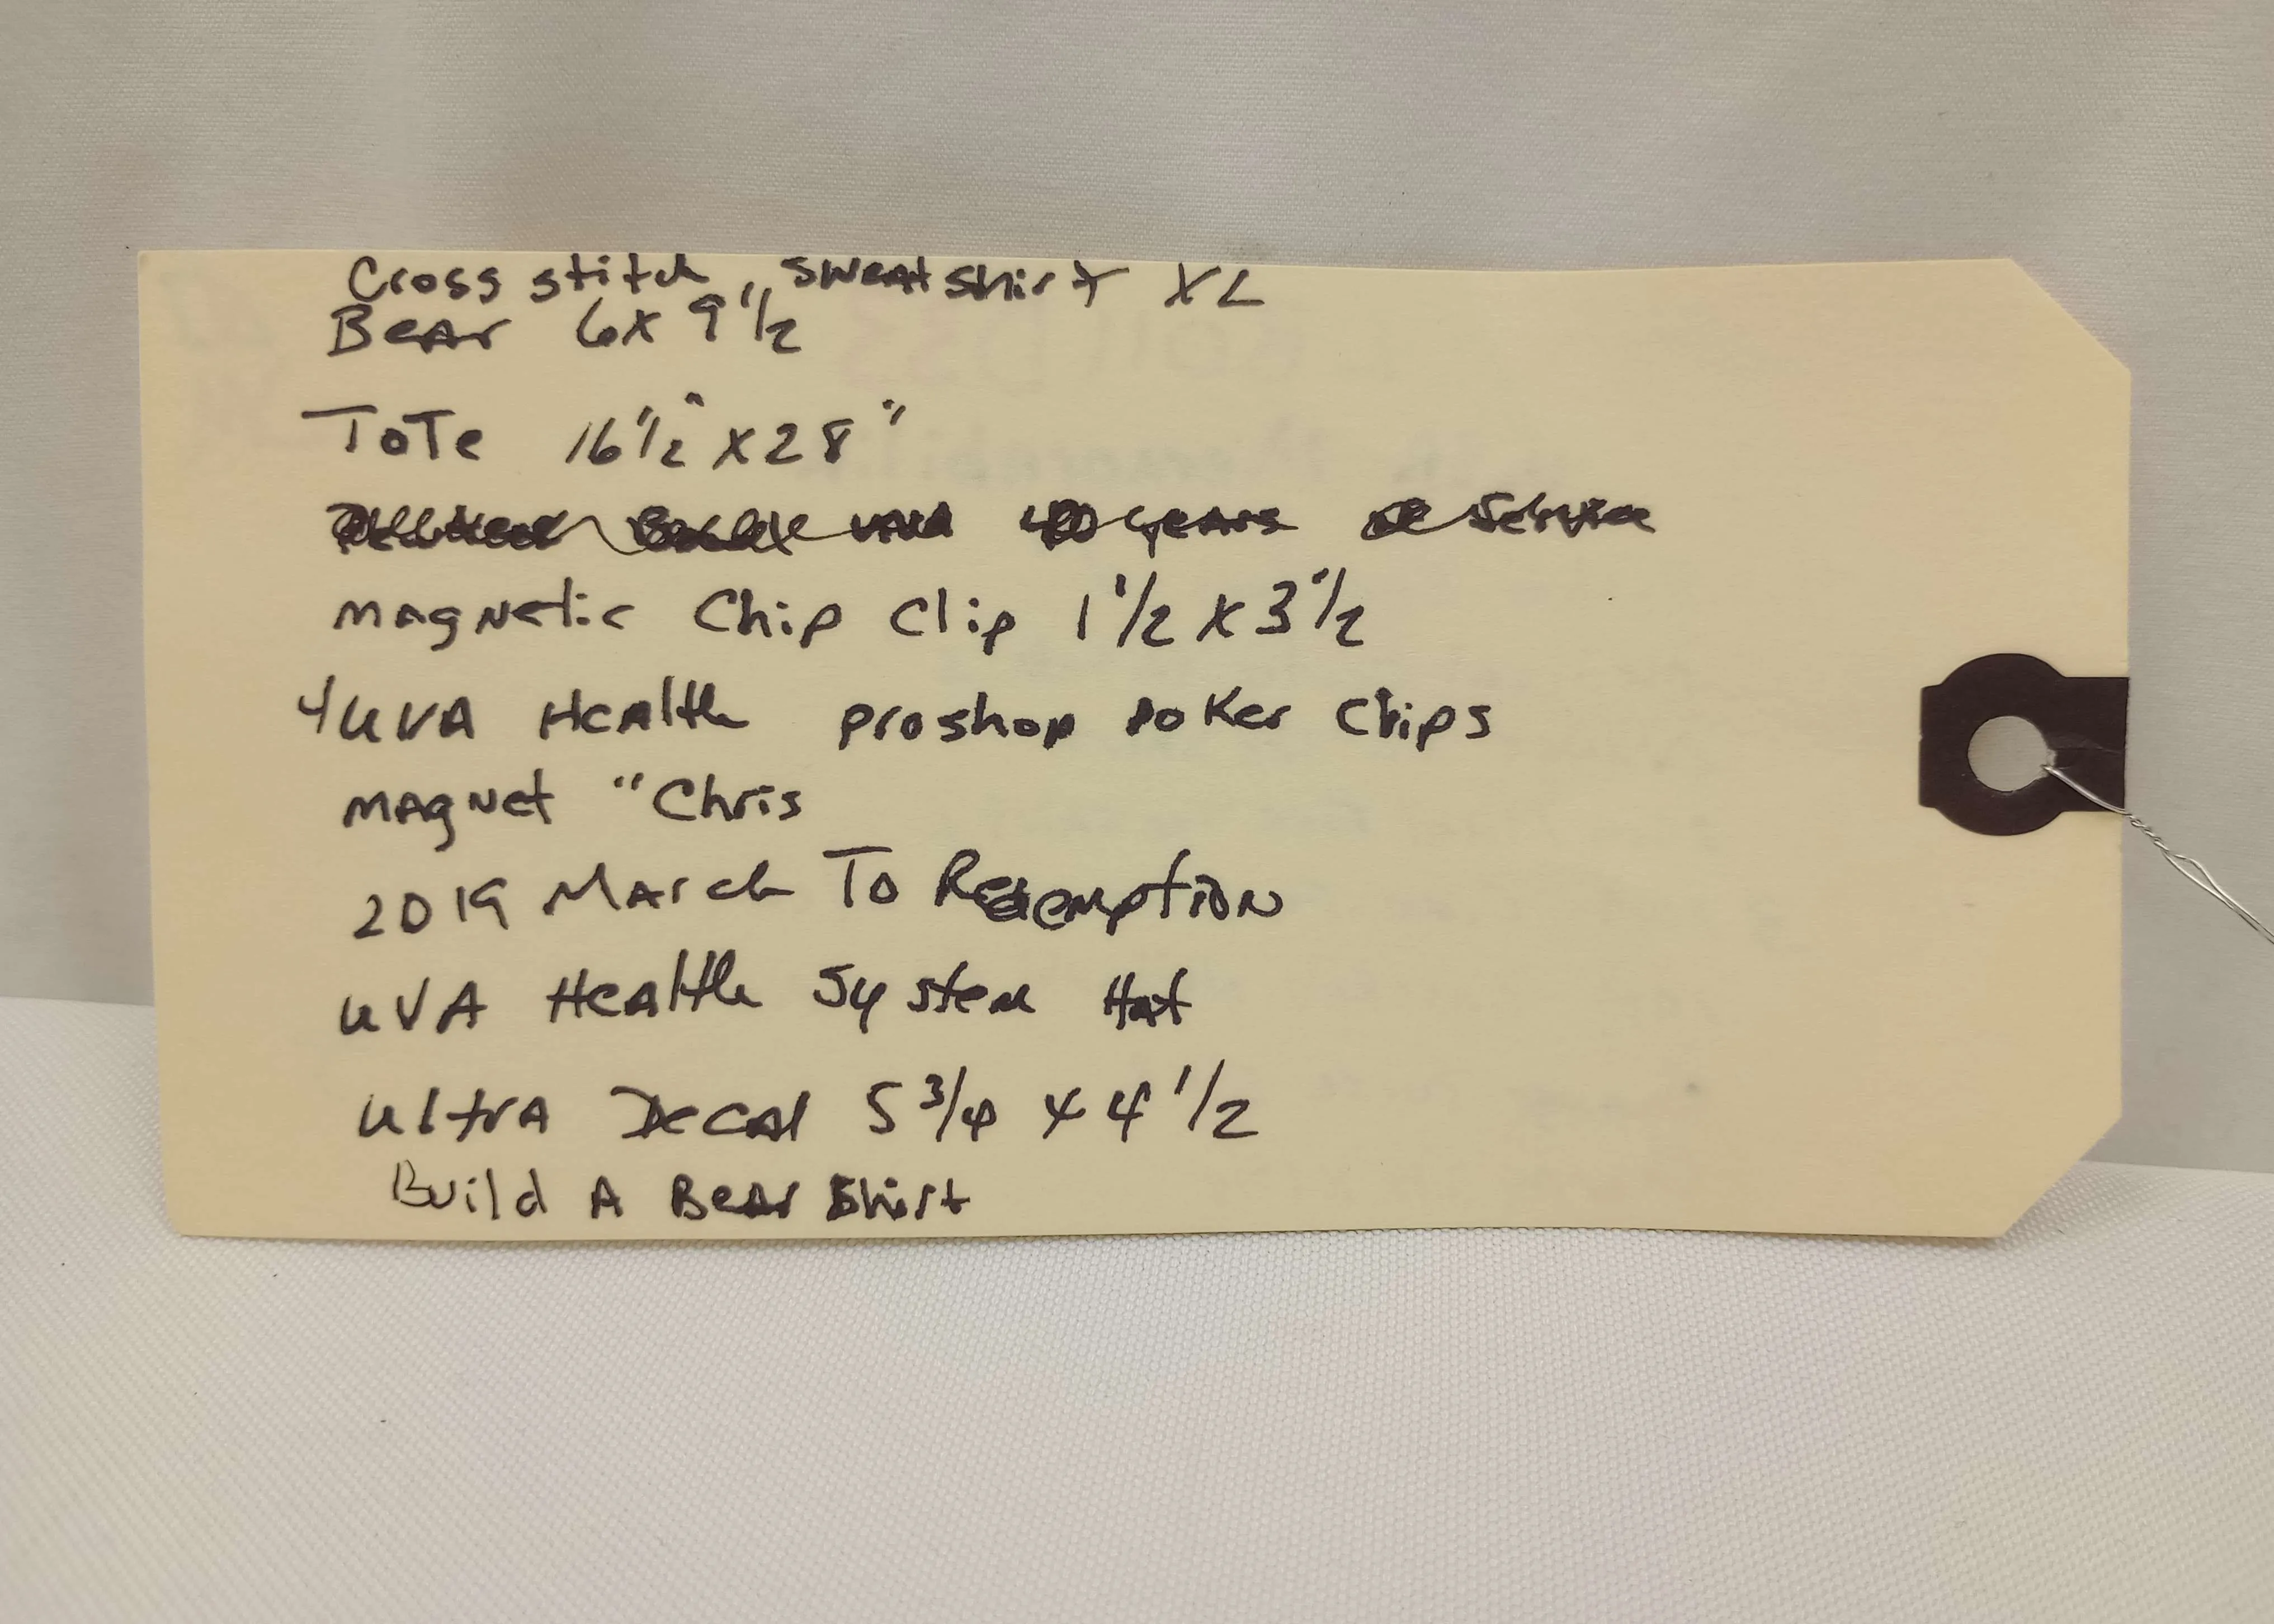 Cross stitch, Sweatshirt XL
Bear 6x9 1/2"
ToTe 16 1/2" x 28"
years Service
Magnetic Chip Clip 1 1/2 x 3 1/2"
4 UVA Health proshop poker Chips
Magnet "Chris
2019 March To Redemption
UVA Health System Hat
Ultra Decal 5 3/4 x 4 1/2
Build A Bear Shirt